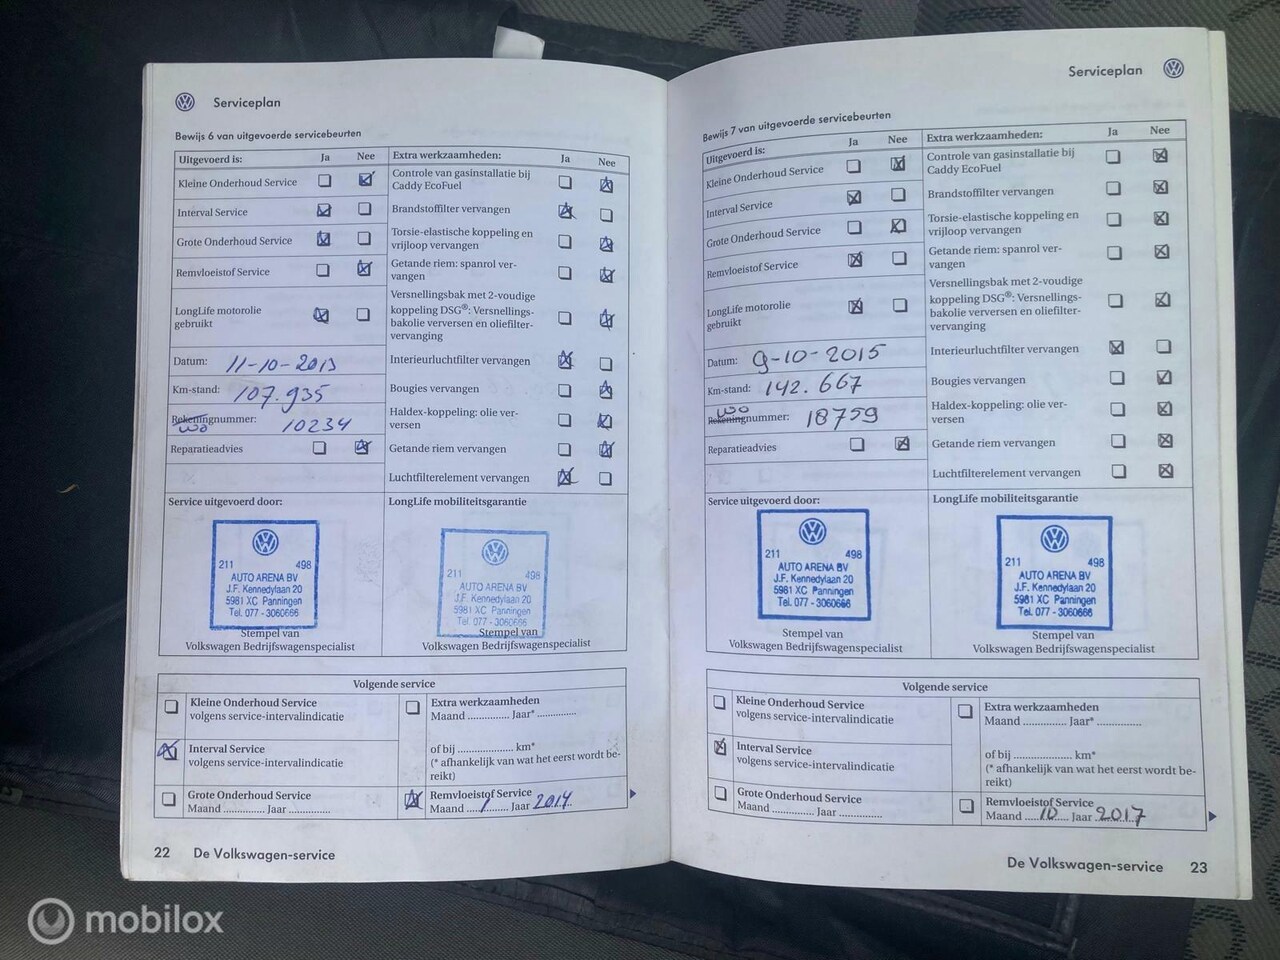 Serviceplan
Bewijs 6 van uitgevoerde servicebeurten
Uitgevoerd is: Ja Nee
Kleine Onderhoud Service
Interval Service
Grote Onderhoud Service
Remvloeistof Service
LongLife motorolie
gebruikt
Datum: 11-10-2013
Km-stand: 107.935
Rekeningnummer: 10234
WO
Reparatieadvies
Extra werkzaamheden: Ja Nee
Controle van gasinstallatie bij
Caddy EcoFuel
Brandstoffilter vervangen
Torsie-elastische koppeling en
vrijloop vervangen
Getande riem: spanrol ver-
vangen
Versnellingsbak met 2-voudige
koppeling DSG®: Versnellings-
bakolie verversen en oliefilter-
vervanging
Interieurluchtfilter vervangen
Bougies vervangen
Haldex-koppeling: olie ver-
versen
Getande riem vervangen
Luchtfilterelement vervangen
Service uitgevoerd door:
211 498
AUTO ARENA BV
J.F. Kennedylaan 20
5981 XC Panningen
Tel. 077 - 3060666
Stempel van
Volkswagen Bedrijfswagenspecialist
LongLife mobiliteitsgarantie
211 498
AUTO ARENA BV
J.F. Kennedylaan 20
5981 XC Panningen
Tel. 077 - 3060666
Stempel van
Volkswagen Bedrijfswagenspecialist
Volgende service
Kleine Onderhoud Service
volgens service-intervalindicatie
Interval Service
volgens service-intervalindicatie
Grote Onderhoud Service
Maand ............ Jaar ............
Extra werkzaamheden
Maand ............ Jaar* ............
of bij ................ km*
(* afhankelijk van wat het eerst wordt be-
reikt)
Remvloeistof Service
Maand 1 Jaar 2014
22 De Volkswagen-service
Serviceplan
Bewijs 7 van uitgevoerde servicebeurten
Uitgevoerd is: Ja Nee
Kleine Onderhoud Service
Interval Service
Grote Onderhoud Service
Remvloeistof Service
LongLife motorolie
gebruikt
Datum: 9-10-2015
Km-stand: 142.667
WO
Rekeningnummer: 18759
Reparatieadvies
Extra werkzaamheden: Ja Nee
Controle van gasinstallatie bij
Caddy EcoFuel
Brandstoffilter vervangen
Torsie-elastische koppeling en
vrijloop vervangen
Getande riem: spanrol ver-
vangen
Versnellingsbak met 2-voudige
koppeling DSG®: Versnellings-
bakolie verversen en oliefilter-
vervanging
Interieurluchtfilter vervangen
Bougies vervangen
Haldex-koppeling: olie ver-
versen
Getande riem vervangen
Luchtfilterelement vervangen
Service uitgevoerd door:
211 498
AUTO ARENA BV
J.F. Kennedylaan 20
5981 XC Panningen
Tel. 077 - 3060666
Stempel van
Volkswagen Bedrijfswagenspecialist
LongLife mobiliteitsgarantie
211 498
AUTO ARENA BV
J.F. Kennedylaan 20
5981 XC Panningen
Tel. 077 - 3060666
Stempel van
Volkswagen Bedrijfswagenspecialist
Volgende service
Kleine Onderhoud Service
volgens service-intervalindicatie
Interval Service
volgens service-intervalindicatie
Grote Onderhoud Service
Maand ............ Jaar ............
Extra werkzaamheden
Maand ............ Jaar* ............
of bij ................ km*
(* afhankelijk van wat het eerst wordt be-
reikt)
Remvloeistof Service
Maand 10 Jaar 2017
De Volkswagen-service 23
mobilox